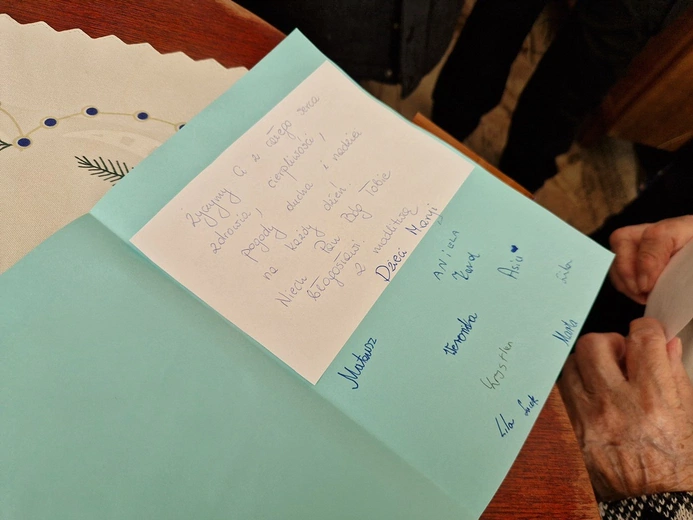 Życzymy Ci z całego serca
zdrowia, cierpliwości,
pogody ducha i nadziei
na każdy dzień.
Niech Pan Bóg Tobie
błogosławi.
z modlitwą
Dzieci Maryi
ANIELA
Zara
Asia
Mateusz
Weronika
Krystian
Marta
Lila